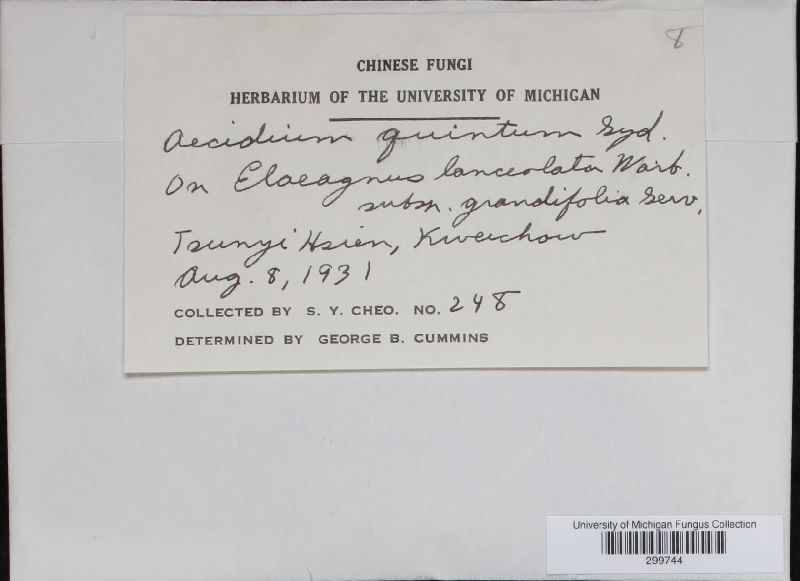 8
CHINESE FUNGI
HERBARIUM OF THE UNIVERSITY OF MICHIGAN
Aecidium quintum Syd.
On Elaeagnus lanceolata Warb.
subsp. grandifolia Serv.
Tsunyi Hsien, Kweichow
Aug. 8, 1931
COLLECTED BY S. Y. CHEO. NO. 248
DETERMINED BY GEORGE B. CUMMINS
University of Michigan Fungus Collection
299744